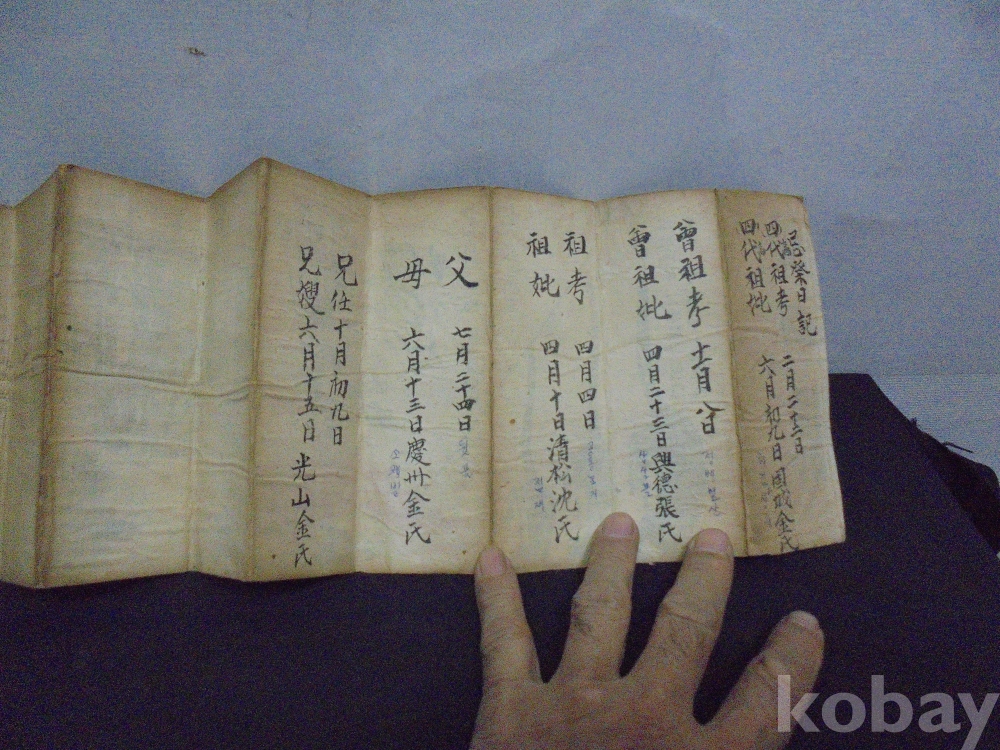 忌祭日記
四代祖考 二月二十二日
四代祖妣 六月初九日 固城金氏
曾祖考 十一月八日
曾祖妣 四月二十三日 興德張氏
祖考 四月四日
祖妣 四月十日 清松沈氏
父 七月二十四日
母 六月十三日 慶州金氏
兄任 十月初九日
兄嫂 六月十五日 光山金氏
kobay